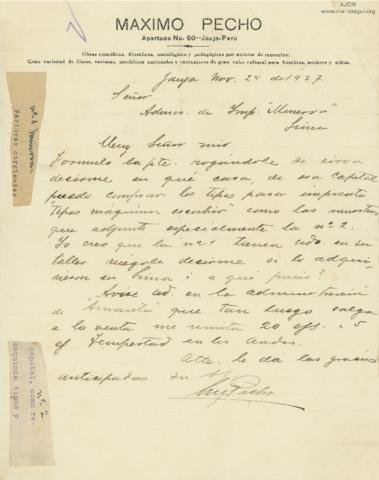 AJCM
www.mariategui.org
MAXIMO PECHO
Apartado No. 60—Jauja-Perú
Obras científicas, filosóficas, sociológicas y pedagógicas por autores de renombre.
Gran variedad de libros, revistas, periódicos nacionales y extranjeros de gran valor cultural para hombres, mujeres y niños.
Jauja Nov. 24 de 1927
Señor
Admor. de Imp. "Minerva"
Lima
Muy Señor mío
Formulo la pte. rogándole se sirva
decirme en qué casa, de esa capital
puedo comprar los tipos para imprenta
"tipos máquina escribir" como las muestras
que adjunto especialmente la nº 2.
Yo creo que la nº 1 tienen Ud. en su
taller ruégole decirme si lo adqui-
rieron en Lima i a qué precio?
Avise Ud. en la administración
de Amauta que tan luego salga
a la venta me remita 20 ejs. i 5
ej Tempestad en los Andes.
Atto. le da las gracias
anticipadas su
Max Pecho
nº 1
Facturas corrientes
nº 2.
capital, como re-
maquina tipos y